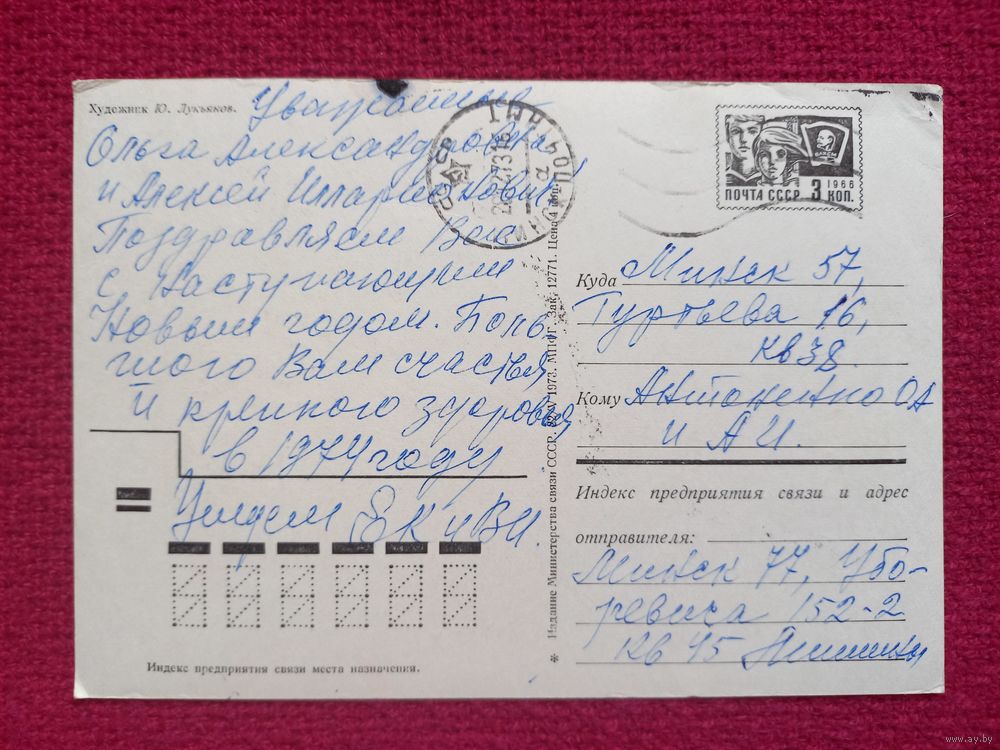 Художник Ю. Лукьянов.
Уважаемые
Ольга Александровна
и Алексей Илларионович
Поздравляем Вас
с Наступающим
Новым годом. Боль-
шого Вам счастья
и крепкого здоровья
в 1974 году
ЕК и ВИ.
Индекс предприятия связи места назначения.
СССР
МИНСК ПОЧТАМТ
* Издание Министерства связи СССР. 1973. МПФГ. Зак. 12771. Цена 4 коп.
ВЛКСМ
1966
ПОЧТА СССР 3 КОП.
Куда Минск 57,
Гуртьева 16,
кв 38
Кому Антоненко ОА
и А И.
Индекс предприятия связи и адрес
отправителя:
Минск 77, Убо-
ревича 152-2
кв 45
www.ay.by